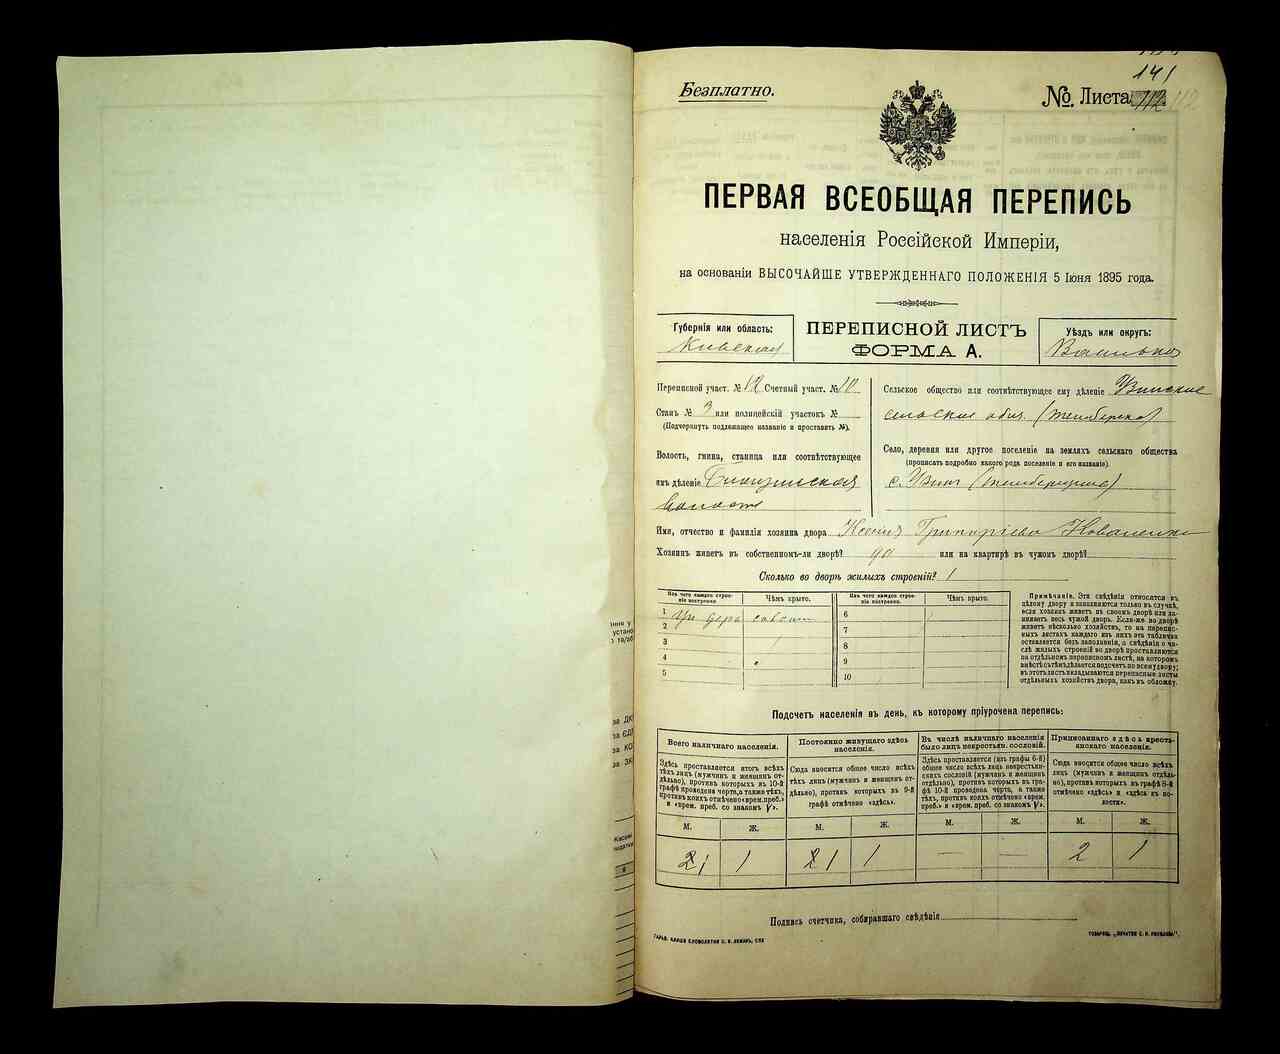 141
Безплатно.
№. Листа 112 112
ПЕРВАЯ ВСЕОБЩАЯ ПЕРЕПИСЬ
населенія Россійской Имперіи,
на основаніи ВЫСОЧАЙШЕ УТВЕРЖДЕННАГО ПОЛОЖЕНІЯ 5 Іюня 1895 года.
Губернія или область:
Кіевская
ПЕРЕПИСНОЙ ЛИСТЪ
ФОРМА А.
Уѣздъ или округъ:
Переписной участ. № 12 Счетный участ. № 10
Станъ № 3 или полицейскій участокъ №
(Подчеркнуть подлежащее названіе и проставить №).
Волость, гмина, станица или соотвѣтствующее
имъ дѣленіе
волость
Сельское общество или соотвѣтствующее ему дѣленіе Узинское
сельское
Село, деревня или другое поселеніе на земляхъ сельскаго общества
(прописать подробно какого рода поселеніе и его названіе).
с. Узинъ
Имя, отчество и фамилія хозяина двора Ксенія Григоріева Коваленко
Хозяинъ живетъ въ собственномъ-ли дворѣ? да или на квартирѣ въ чужомъ дворѣ?
Сколько во дворѣ жилыхъ строеній? 1
Изъ чего каждое строеніе построено.
Чѣмъ крыто.
Изъ чего каждое строеніе построено.
Чѣмъ крыто.
1
2
3
4
5
6
7
8
9
10
Примѣчаніе. Эти свѣдѣнія относятся къ
цѣлому двору и заполняются только въ случаѣ,
если хозяинъ живетъ въ своемъ дворѣ или занимаетъ
весь чужой дворъ. Если-же во дворѣ
живетъ нѣсколько хозяйствъ, то на переписныхъ
листахъ каждаго изъ нихъ эта табличка
оставляется безъ заполненія, а свѣдѣнія о числѣ
жилыхъ строеній во дворѣ проставляются
на отдѣльномъ переписномъ листѣ, на которомъ
вмѣстѣ съ тѣмъ дѣлается подсчетъ по всему двору;
въ этотъ листъ вкладываются переписные листы
отдѣльныхъ хозяйствъ двора, какъ въ обложку.
Подсчетъ населенія въ день, къ которому пріурочена перепись:
Всего наличнаго населенія.
Постоянно живущаго здѣсь населенія.
Въ числѣ наличнаго населенія было лицъ некрестьян. сословій.
Приписаннаго здѣсь крестьянскаго населенія.
Здѣсь проставляется итогъ всѣхъ тѣхъ лицъ (мужчинъ и женщинъ отдѣльно), противъ которыхъ въ 10-й графѣ проведена черта, а также тѣхъ, противъ коихъ отмѣчено «врем. преб.» и «врем. преб. со знакомъ V».
Сюда вносится общее число всѣхъ тѣхъ лицъ (мужчинъ и женщинъ отдѣльно), противъ которыхъ въ 9-й графѣ отмѣчено «здѣсь».
Здѣсь проставляется (изъ графы 6-й) общее число всѣхъ лицъ некрестьянскихъ сословій (мужчинъ и женщинъ отдѣльно), противъ которыхъ въ графѣ 10-й проведена черта, а также тѣхъ, противъ коихъ отмѣчено «врем. преб.» и «врем. преб. со знакомъ V».
Сюда вносится общее число всѣхъ лицъ (мужчинъ и женщинъ отдѣльно), противъ которыхъ въ графѣ 8-й отмѣчено «здѣсь» и «здѣсь къ волости».
М. Ж. М. Ж. М. Ж. М. Ж.
21 1 21 1 — — 2 1
Подпись счетчика, собиравшаго свѣдѣнія